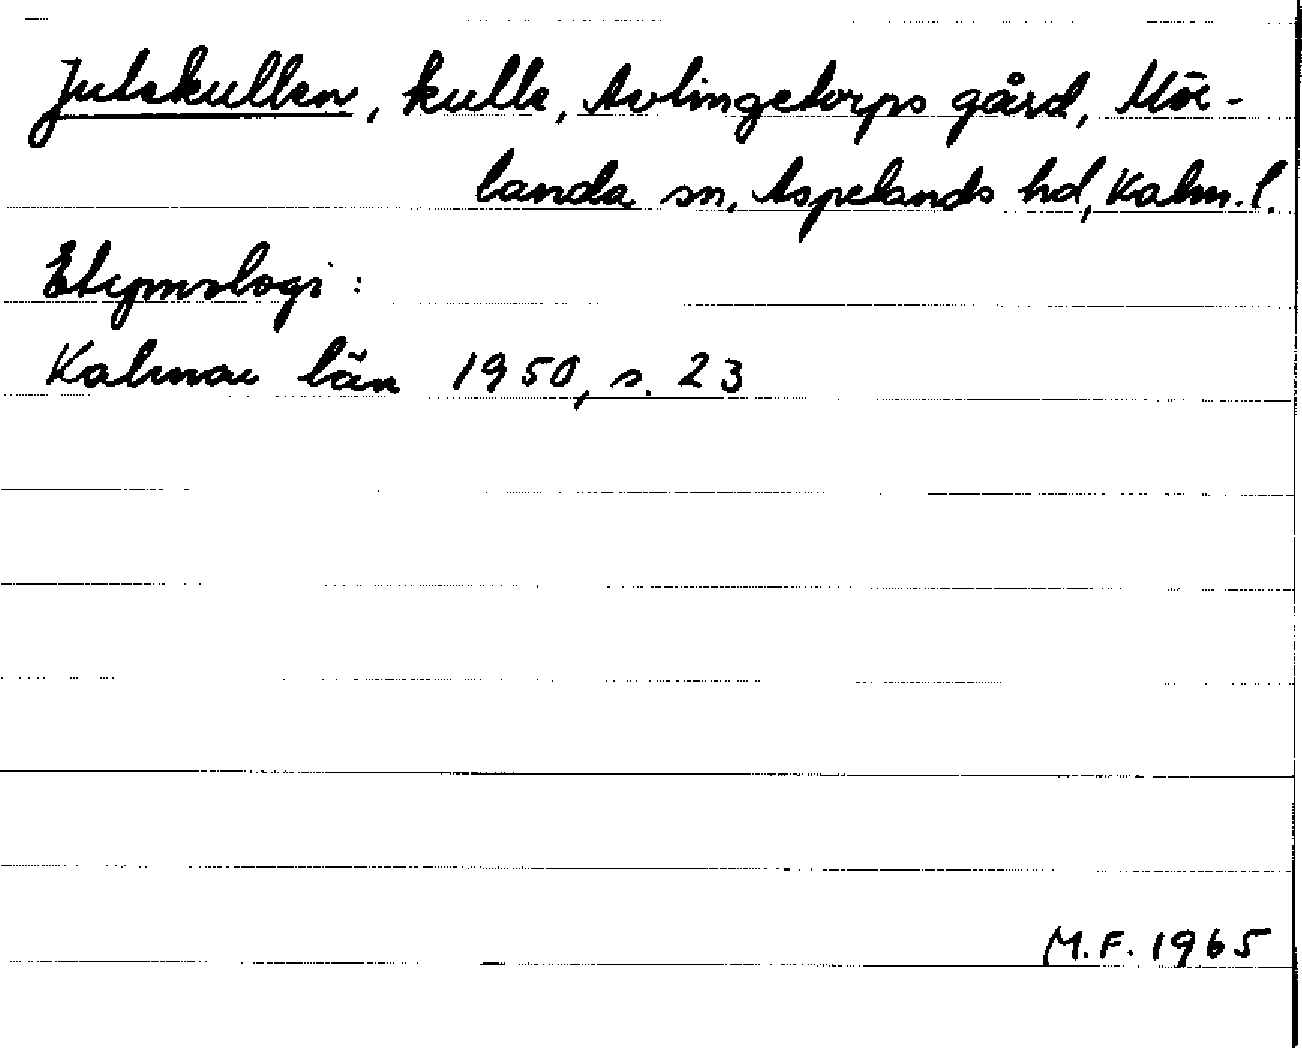 Jutekullen, kulle, Avlingetorps gård, Mör-
landa sn, Aspelands hd, Kalm. l.
Etymologi:
Kalmar län 1950, s. 23
M.F. 1965